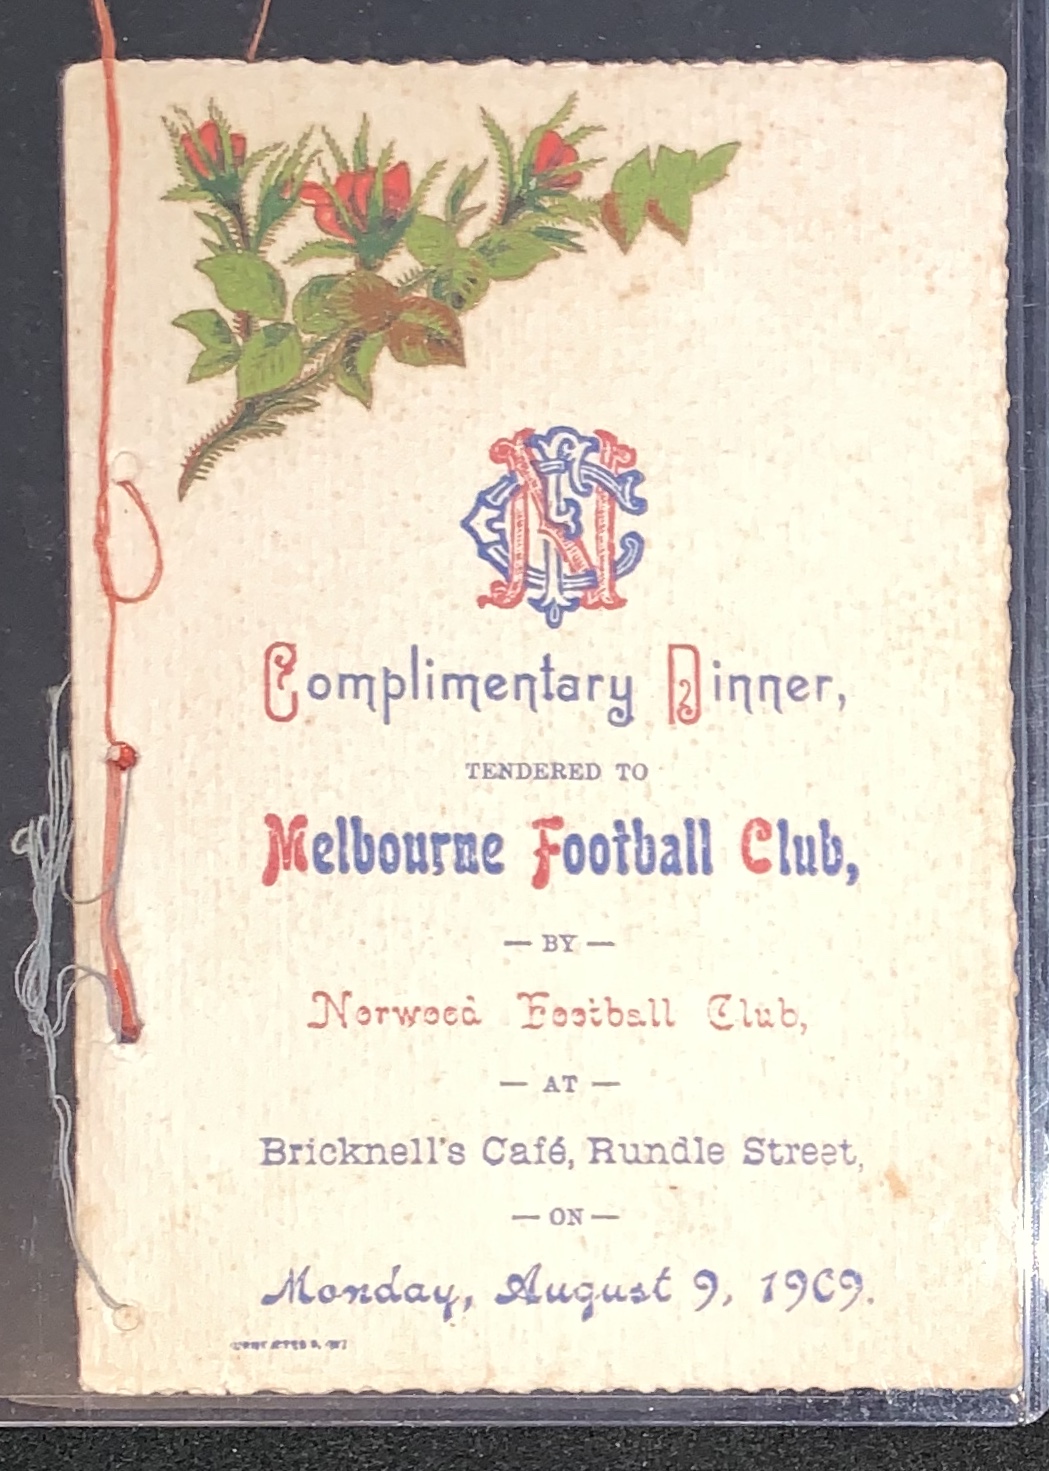 NFC
Complimentary Dinner,
TENDERED TO
Melbourne Football Club,
— BY —
Norwood Football Club,
— AT —
Bricknell's Café, Rundle Street,
— ON —
Monday, August 9, 1909.